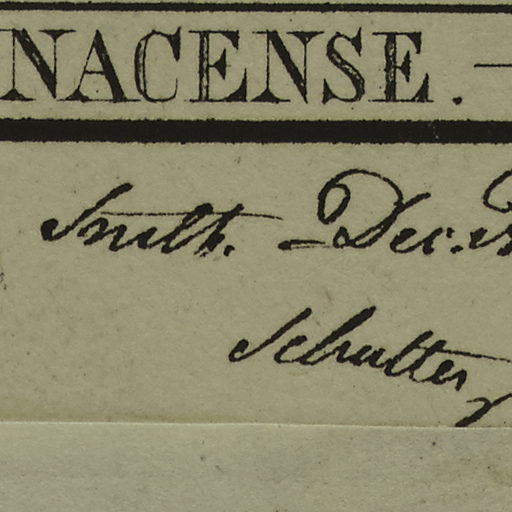 NACENSE. —
Smith. - Dec.
Schultes